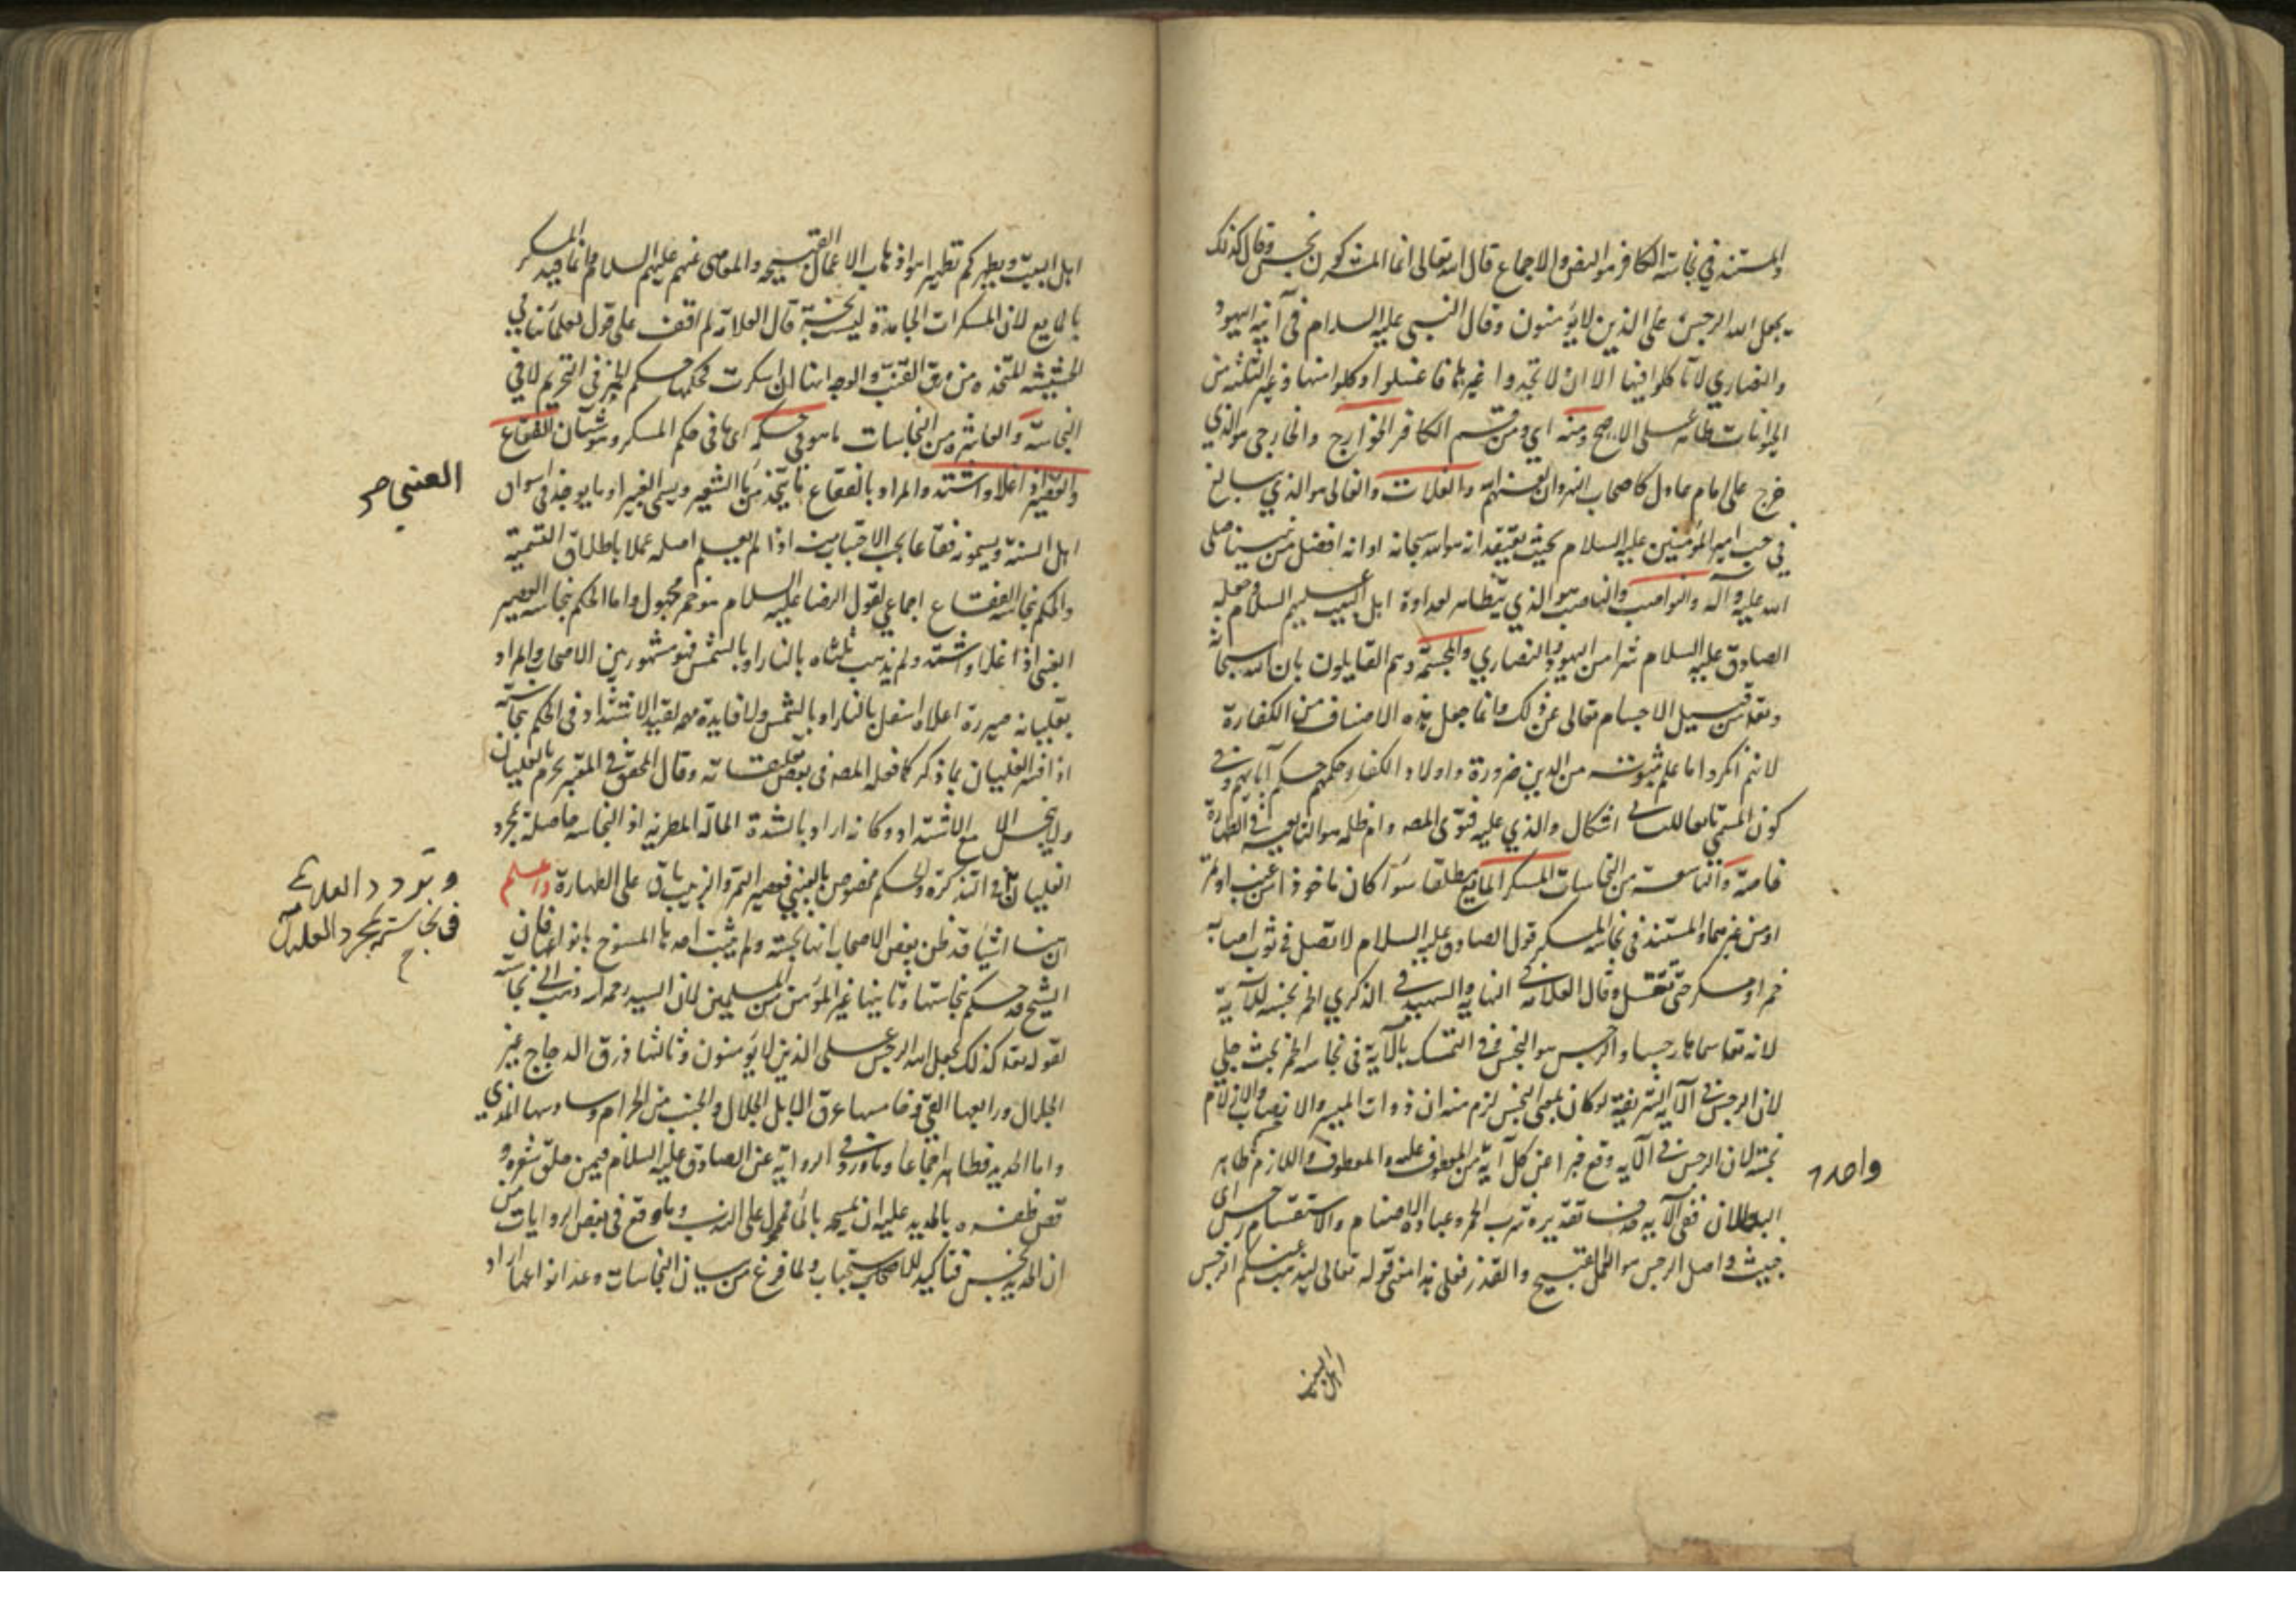 والمستند في نجاسة الكافر هو النص والاجماع قال الله تعالى انما المشركون نجس وقال كذلك
يجعل الله الرجس على الذين لا يؤمنون وقال النبي عليه السلام في آنية اليهود
والنصارى لا تأكلوا فيها الا ان لا تجدوا غيرها فاغسلوا وكلوا منها وغير الثلثة من
الحيوانات طاهر على الاصح ومنه اي ومن قسم الكافر الخوارج والخارجي هو الذي
خرج على امام عادل كاصحاب النهروان لعنهم الله والغلات والغالي هو الذي يبالغ
في حب امير المؤمنين عليه السلام بحيث يعتقد انه هو الله سبحانه او انه افضل من نبينا صلى
الله عليه وآله والنواصب والناصب هو الذي يتظاهر لعداوة اهل البيت عليهم السلام وجعله
الصادق عليه السلام شرا من اليهود والنصارى والمجسمة وهم القايلون بان الله سبحانه
وتعا من قبيل الاجسام تعالى عن ذلك وانما جعل هذه الاصناف من الكفارة
لانهم انكروا ما علم ثبوته من الدين ضرورة واولاد الكفار حكمهم حكم آبائهم وفي
كون المسبي تابعا للسابي اشكال والذي عليه فتوى المصه وام ظله هو التابعية في الطهارة
خاصة والتاسعة من النجاسات المسكر المايع مطلقا سواء كان ماخوذا من عنب او تمر
او من غيرهما والمستند في نجاسة المسكر قول الصادق عليه السلام لا تصل في ثوب اصابه
خمر او مسكر حتى تغسل وقال العلامة في النهاية والشهيد في الذكرى الخمر نجسة للآية
لانه تعا سماها رجسا والرجس هو النجس وفي التمسك بالآية في نجاسة الخمر بحث جلي
لان الرجس في الآية الشريفة لو كان بمعنى النجس لزم منه ان ذوات الميسر والانصاب والازلام
نجسة لان الرجس في الآية وقع خبرا عن كل آية من المعطوف عليه والمعطوف واللازم ظاهر
واحد
البطلان ففي الآية حذف تقديره شرب الخمر وعبادة الاصنام والاستقسام رجس اي
خبيث واصل الرجس هو العمل القبيح والقذر فعلى هذا معنى قوله تعالى ليذهب عنكم الرجس
اهل البيت
اهل البيت ويطهركم تطهيرا هو اذهاب الاعمال القبيحة والمعاصي عنهم عليهم السلام وانما قيد المسكر
بالمايع لان المسكرات الجامدة ليست نجسة قال العلامة لم اقف على قول لعلمائنا في
الحشيشة المتخذه من ورق القنب والوجه انها ان اسكرت فحكمها حكم الخمر في التحريم لا في
النجاسة والعاشرة من النجاسات ما هو في حكمه اي ما في حكم المسكر وهو شيئان الفقاع
والعصير اذا غلا واشتد والمراد بالفقاع ما يتخذ من ماء الشعير ويسمى الغبيرا وما يوجد في اسواق
العنبي صح
اهل السنة ويسمونه فقاعا يجب الاجتناب منه اذا لم يعلم اصله عملا باطلاق التسمية
والحكم بنجاسة الفقاع اجماعي لقول الرضا عليه السلام هو خمر مجهول واما الحكم بنجاسة العصير
العنبي اذا غلا واشتد ولم يذهب ثلثاه بالنار او بالشمس فهو مشهور بين الاصحاب والمراد
بغليانه صيرورة اعلاه اسفل بالنار او بالشمس ولا فايدة مهمة لقيد الاشتداد في الحكم بنجاسته
اذا فسر الغليان بما ذكر كما فعله المصه في بعض تعليقاته وقال المحقق في المعتبر يحرم بالغليان
ولا ينجس الا مع الاشتداد وكانه اراد بالشدة الحالة المطربة اذ النجاسة حاصلة بمجرد
الغليان في التذكرة والحكم مخصوص بالعنبي فعصير التمر والزبيب باق على الطهارة واعلم
وتردد العلامة
في نجاسته بمجرد الغليان
ان هنا اشياء قد ظن بعض الاصحاب انها نجسة ولم يثبت احدها المسوخ بانواعها فان
الشيخ قد حكم بنجاستها وثانيها غير المؤمن من المسلمين لان السيد رحمه الله ذهب الى نجاسته
لقوله تعا كذلك يجعل الله الرجس على الذين لا يؤمنون وثالثها ذرق الدجاج غير
الجلال ورابعها القيء وخامسها عرق الابل الجلال والجنب من الحرام وسادسها المذي
واما الحديد فطاهر اجماعا وما ورد في الرواية عن الصادق عليه السلام فيمن حلق شعره و
قص ظفره بالحديد عليه ان يمسحه بالماء فمحمول على الندب وما وقع في بعض الروايات من
ان الحديد نجس فتاكيد للاستحباب ولما فرغ من بيان النجاسات وعد انواعها اراد